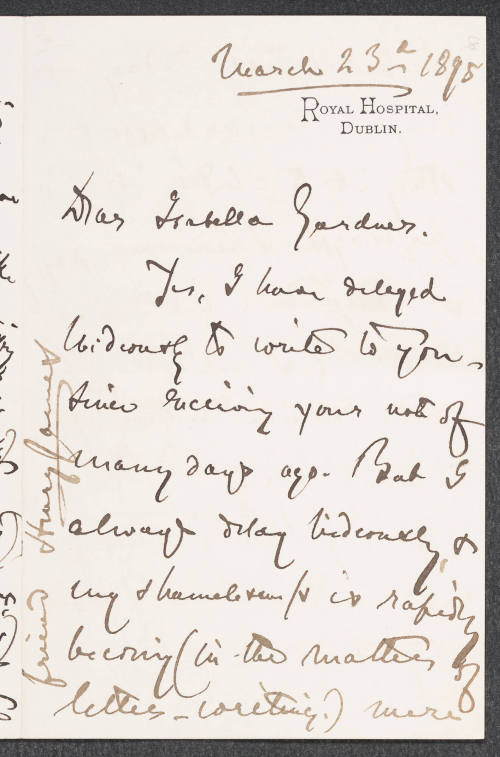 March 23d 1895
ROYAL HOSPITAL,
DUBLIN.
Dear Isabella Gardner.
Yes, I have delayed
hideously to write to you –
since receiving your note of
many days ago. But I
always delay hideously, &
my shamelessness is rapidly
becoming (in the matter of
letter-writing.) more
friend Henry James